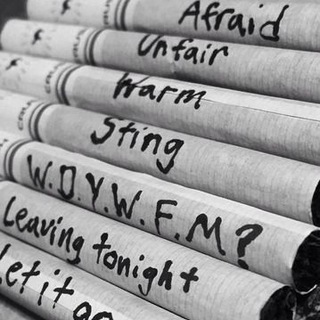 Afraid
Unfair
Warm
Sting
W.D.Y.W.F.M?
Leaving tonight
Let it go